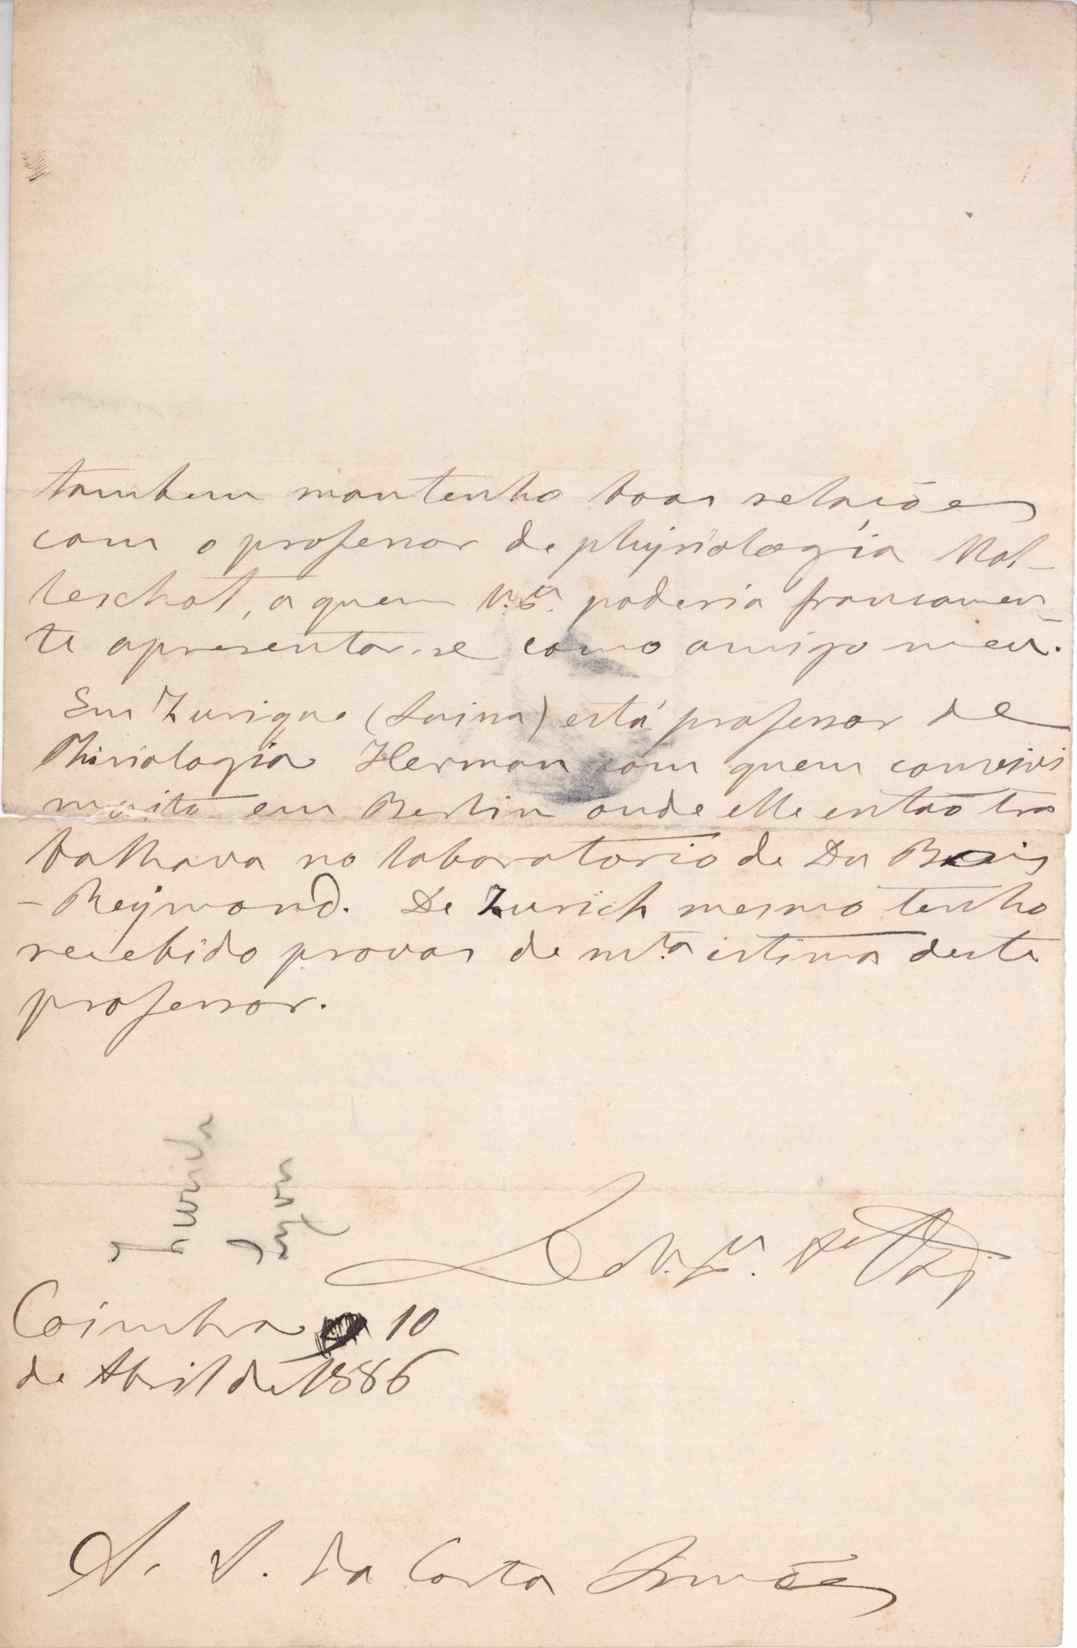 tambem mantenho boas relações
com o professor de physiologia Mol-
leschot, a quem V. S.ª poderia francamen-
te apresentar-se como amigo meu.
Em Zurique (Suissa) está professor de
Phisiologia Herman com quem convivi
muito em Berlin onde elle então tra
balhava no laboratorio de Du Bois
-Reymond. De Zurich mesmo tenho
recebido provas de mt.ª estima deste
professor.
Zurich
Lyon
De V. S.ª
Coimbra 10
de Abril de 1886
A. A. da Costa Simões